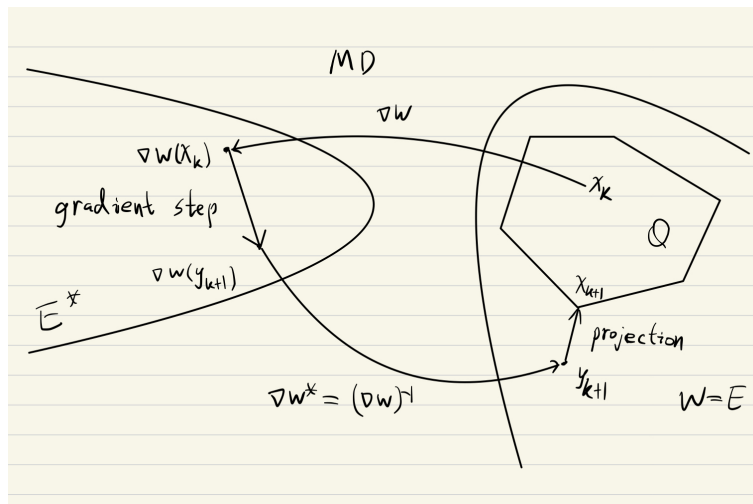 MD
∇W
∇W(x_k)
x_k
gradient step
Q
∇W(y_{k+1})
x_{k+1}
E*
projection
y_{k+1}
∇W* = (∇W)^{-1}
W=E